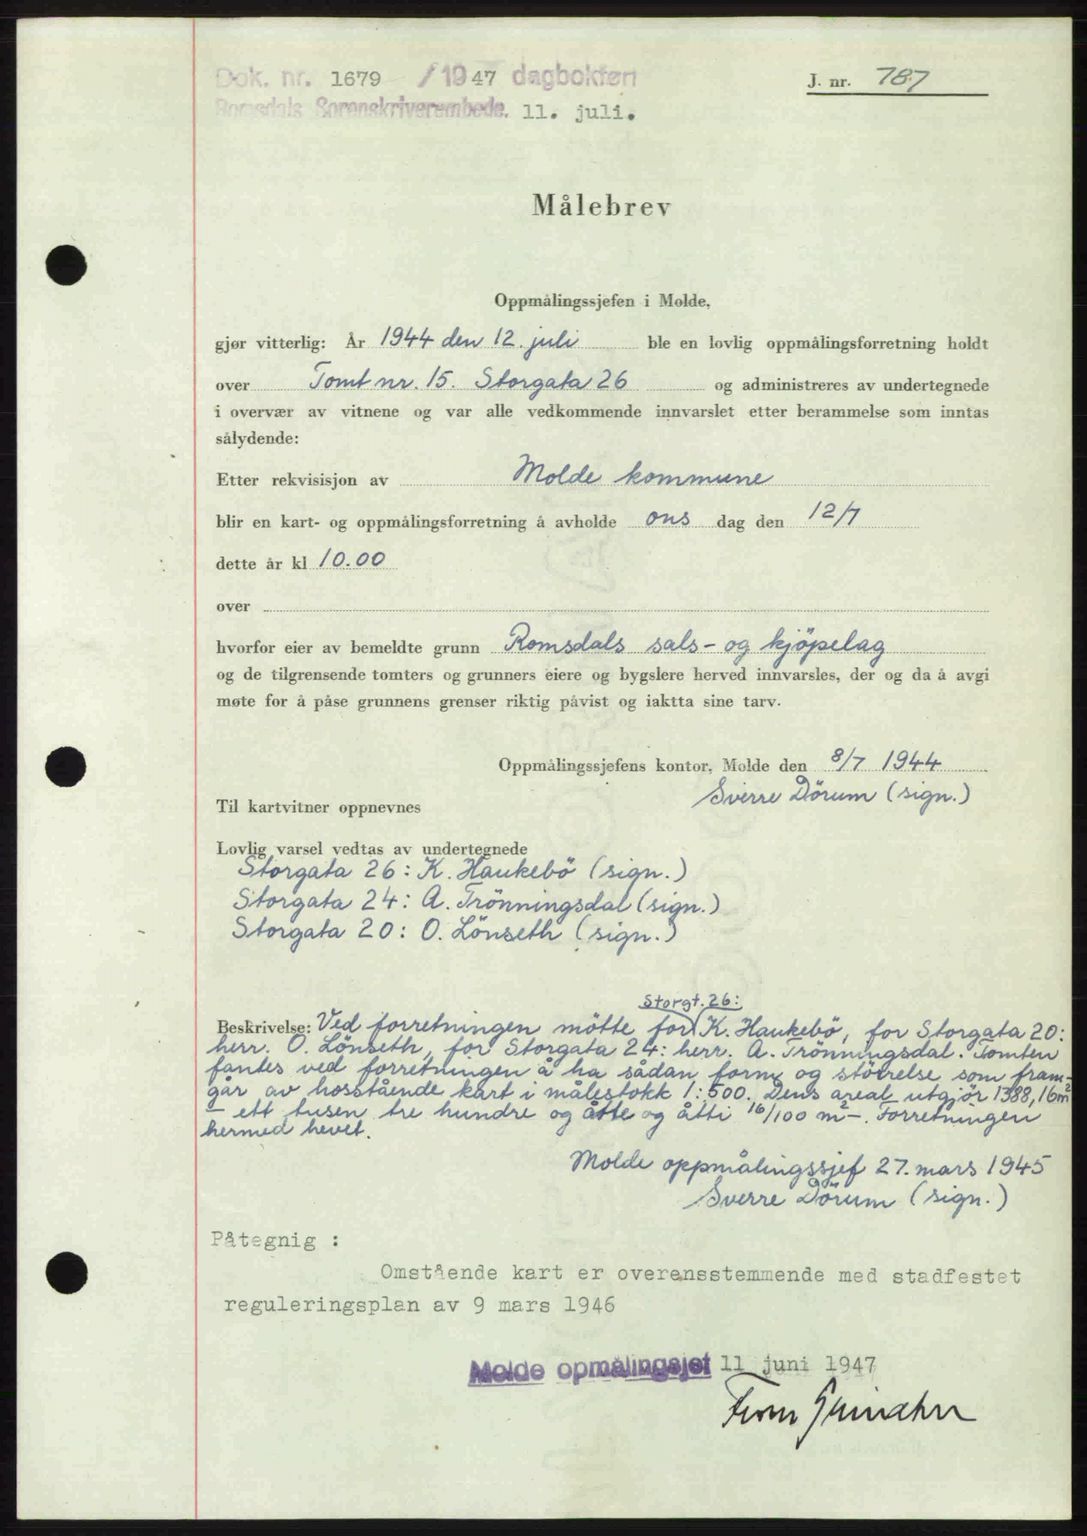 Dok. nr. 1679 / 1947 dagbokfen
J. nr. 787
Romsdals Sorenskriverembede. 11. juli.
Målebrev
Oppmålingssjefen i Molde,
gjør vitterlig: År 1944 den 12. juli ble en lovlig oppmålingsforretning holdt
over Tomt nr. 15. Storgata 26 og administreres av undertegnede
i overvær av vitnene og var alle vedkommende innvarslet etter berammelse som inntas
sålydende:
Etter rekvisisjon av Molde kommune
blir en kart- og oppmålingsforretning å avholde ons dag den 12/7
dette år kl 10.00
over
hvorfor eier av bemeldte grunn Romsdals sals- og kjöpelag
og de tilgrensende tomters og grunners eiere og bygslere herved innvarsles, der og da å avgi
møte for å påse grunnens grenser riktig påvist og iaktta sine tarv.
Oppmålingssjefens kontor, Molde den 8/7 1944
Sverre Dörum (sign.)
Til kartvitner oppnevnes
Lovlig varsel vedtas av undertegnede
Storgata 26: K. Haukebö (sign.)
Storgata 24: A. Trönningsdal (sign.)
Storgata 20: O. Lönseth (sign.)
Storgt. 26:
Beskrivelse: Ved forretningen mötte for K. Haukebö, for Storgata 20:
herr. O. Lönseth, for Storgata 24: herr. A. Trönningsdal. Tomten
fantes ved forretningen å ha sådan form og störrelse som fram-
går av hosstående kart i målestokk 1:500. Dens areal utgjör 1388,16 m²
- ett tusen tre hundre og åtte og åtti 16/100 m² -. Forretningen
hermed hevet.
Molde oppmålingssjef 27. mars 1945
Sverre Dörum (sign.)
Påtegnig :
Omstående kart er overensstemmende med stadfestet
reguleringsplan av 9 mars 1946
Molde opmålingsjef 11 juni 1947